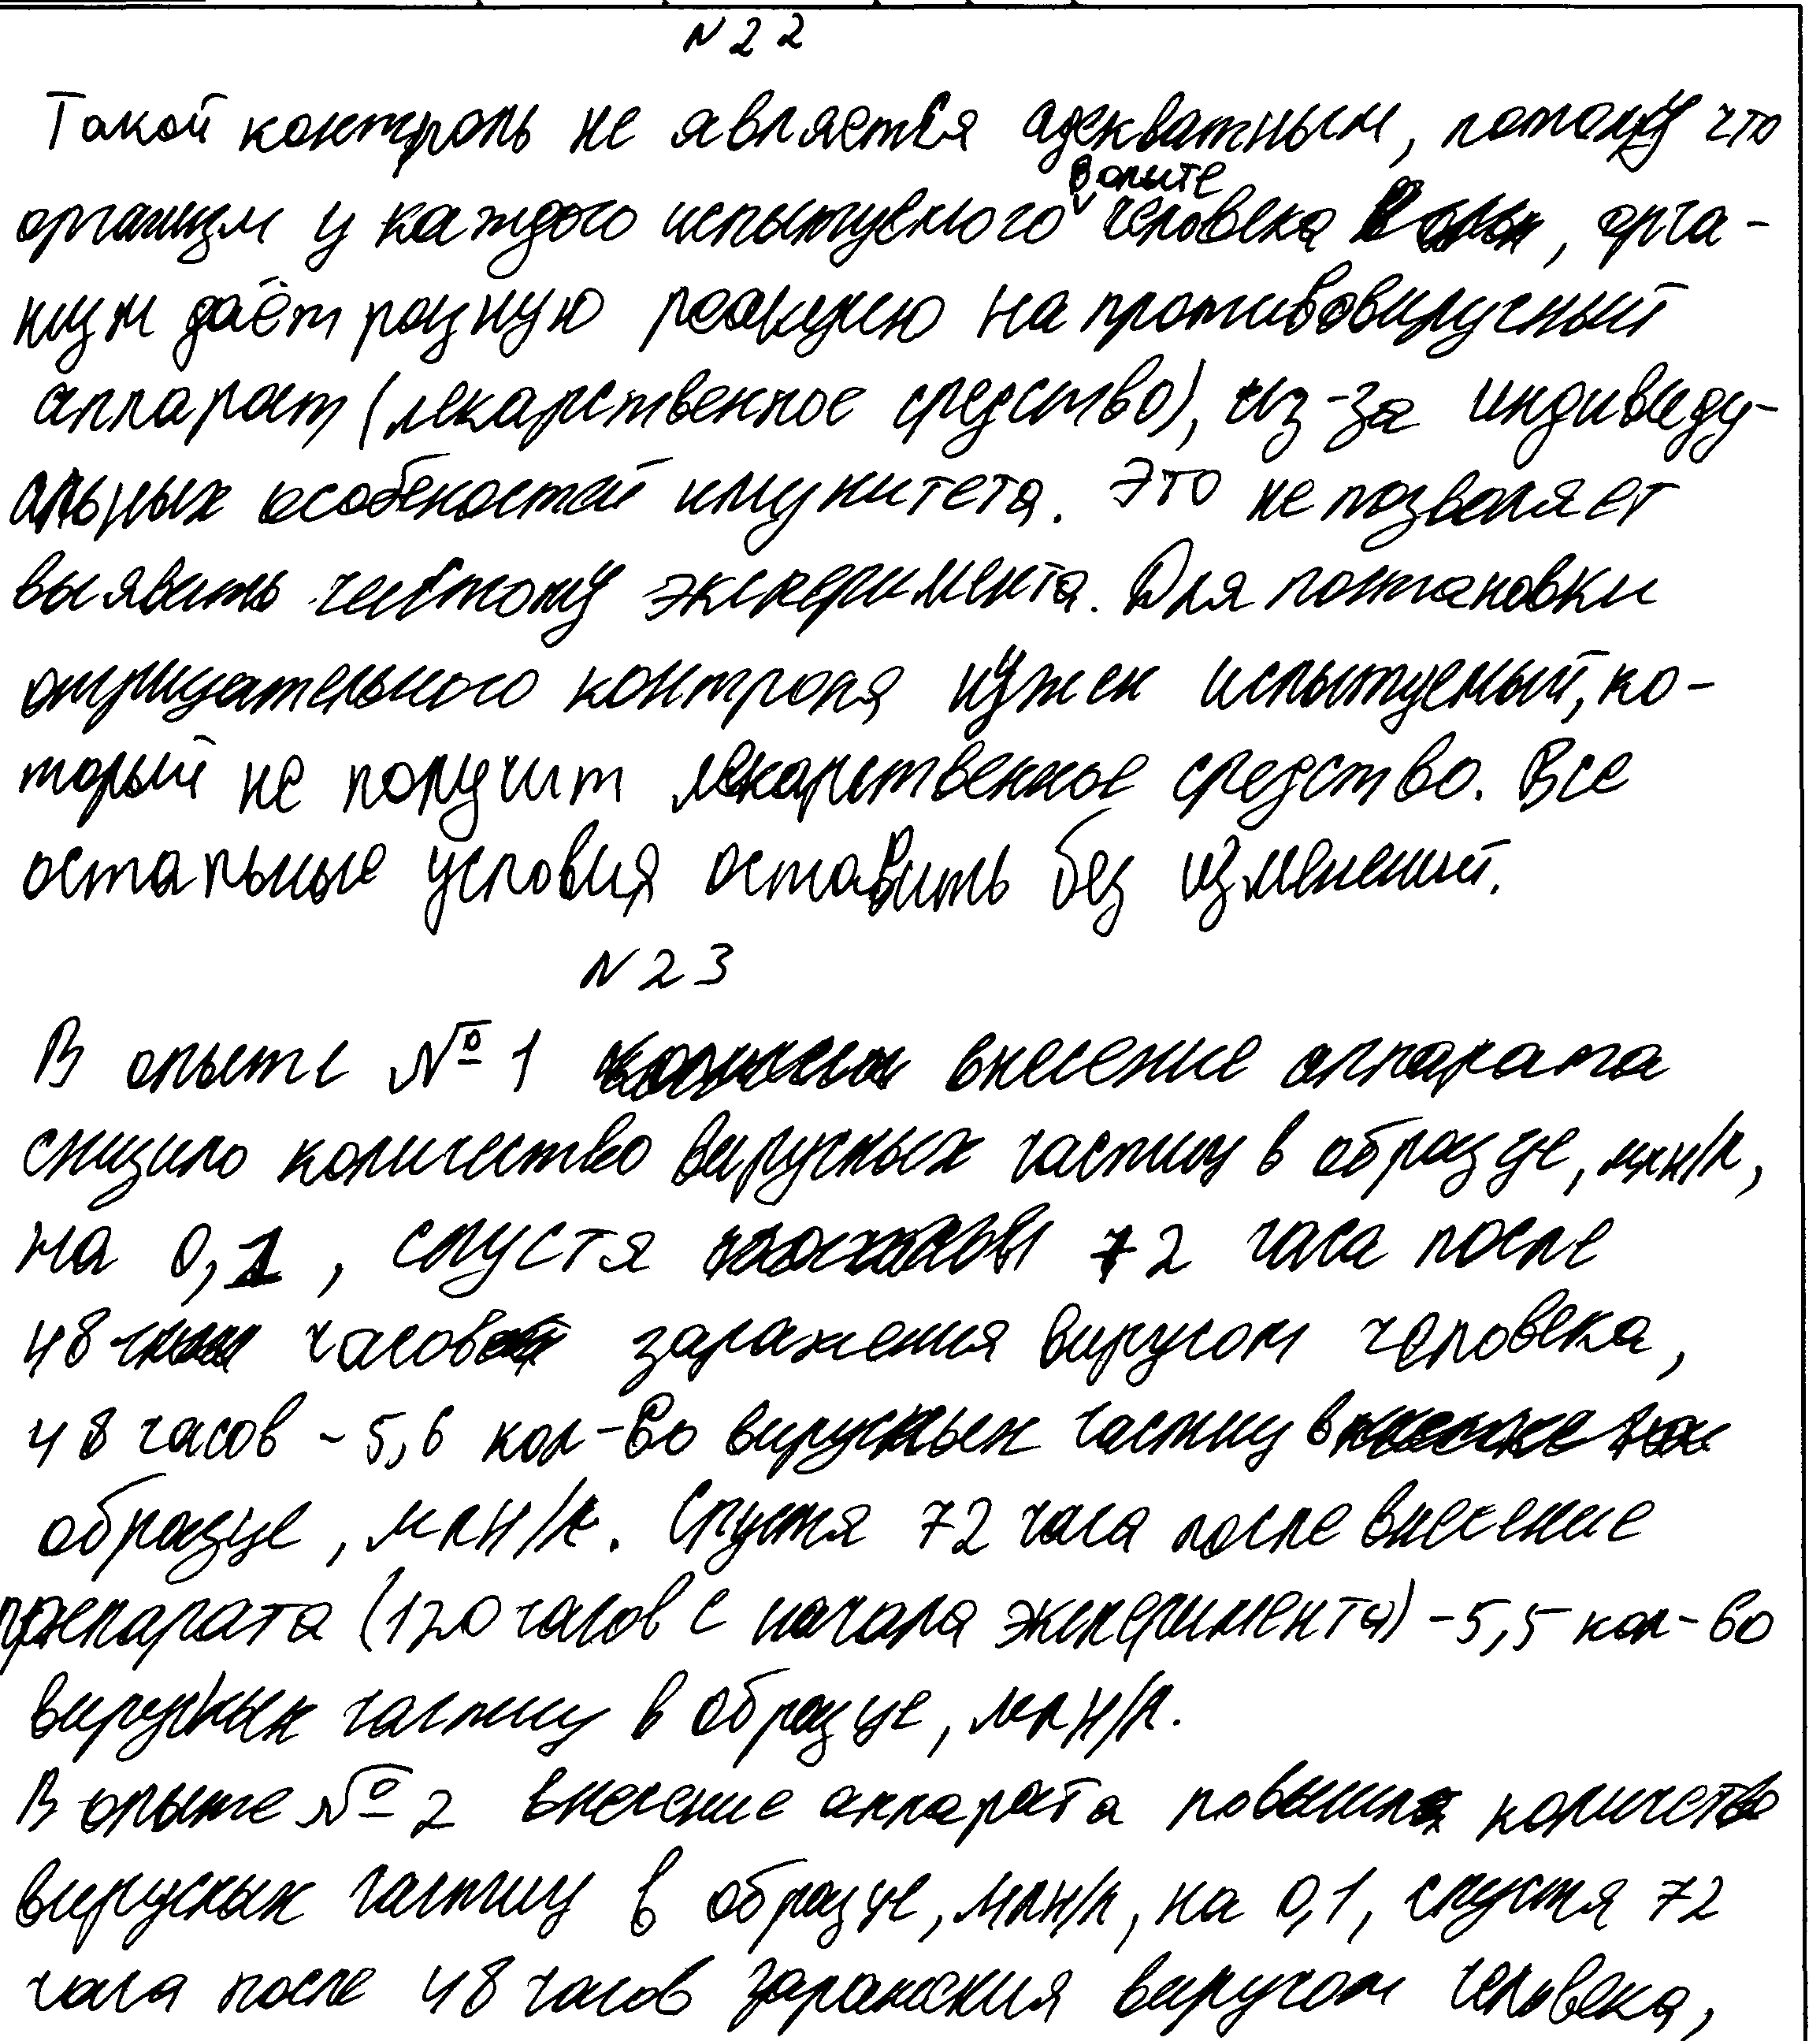 N 22
Такой контроль не является адекватным, потому что
в опыте
организм у каждого испытуемого человека, орга-
низм даёт разную реакцию на противовирусный
аппарат (лекарственное средство), из-за индивиду-
альных особеностей имунитета. Это не позволяет
выявить чистоту эксперимента. Для постановки
отрицательного контроля нужен испытуемый, ко-
торый не получит лекарственное средство. Все
остальные условия оставить без изменений.
N 23
В опыте № 1 внесение аппарата
снизило количество вирусных частиц в образце, млн/л,
на 0,1, спустя 72 часа после
48 часов заражения вирусом человека,
48 часов - 5,6 кол-во вирусных частиц в
образце, млн/л. Спустя 72 часа после внесение
препарата (120 часов с начала эксперимента) - 5,5 кол-во
вирусных частиц в образце, млн/л.
В опыте № 2 внесение аппарата повысило количество
вирусных частиц в образце, млн/л, на 0,1, спустя 72
часа после 48 часов заражения вирусом человека,